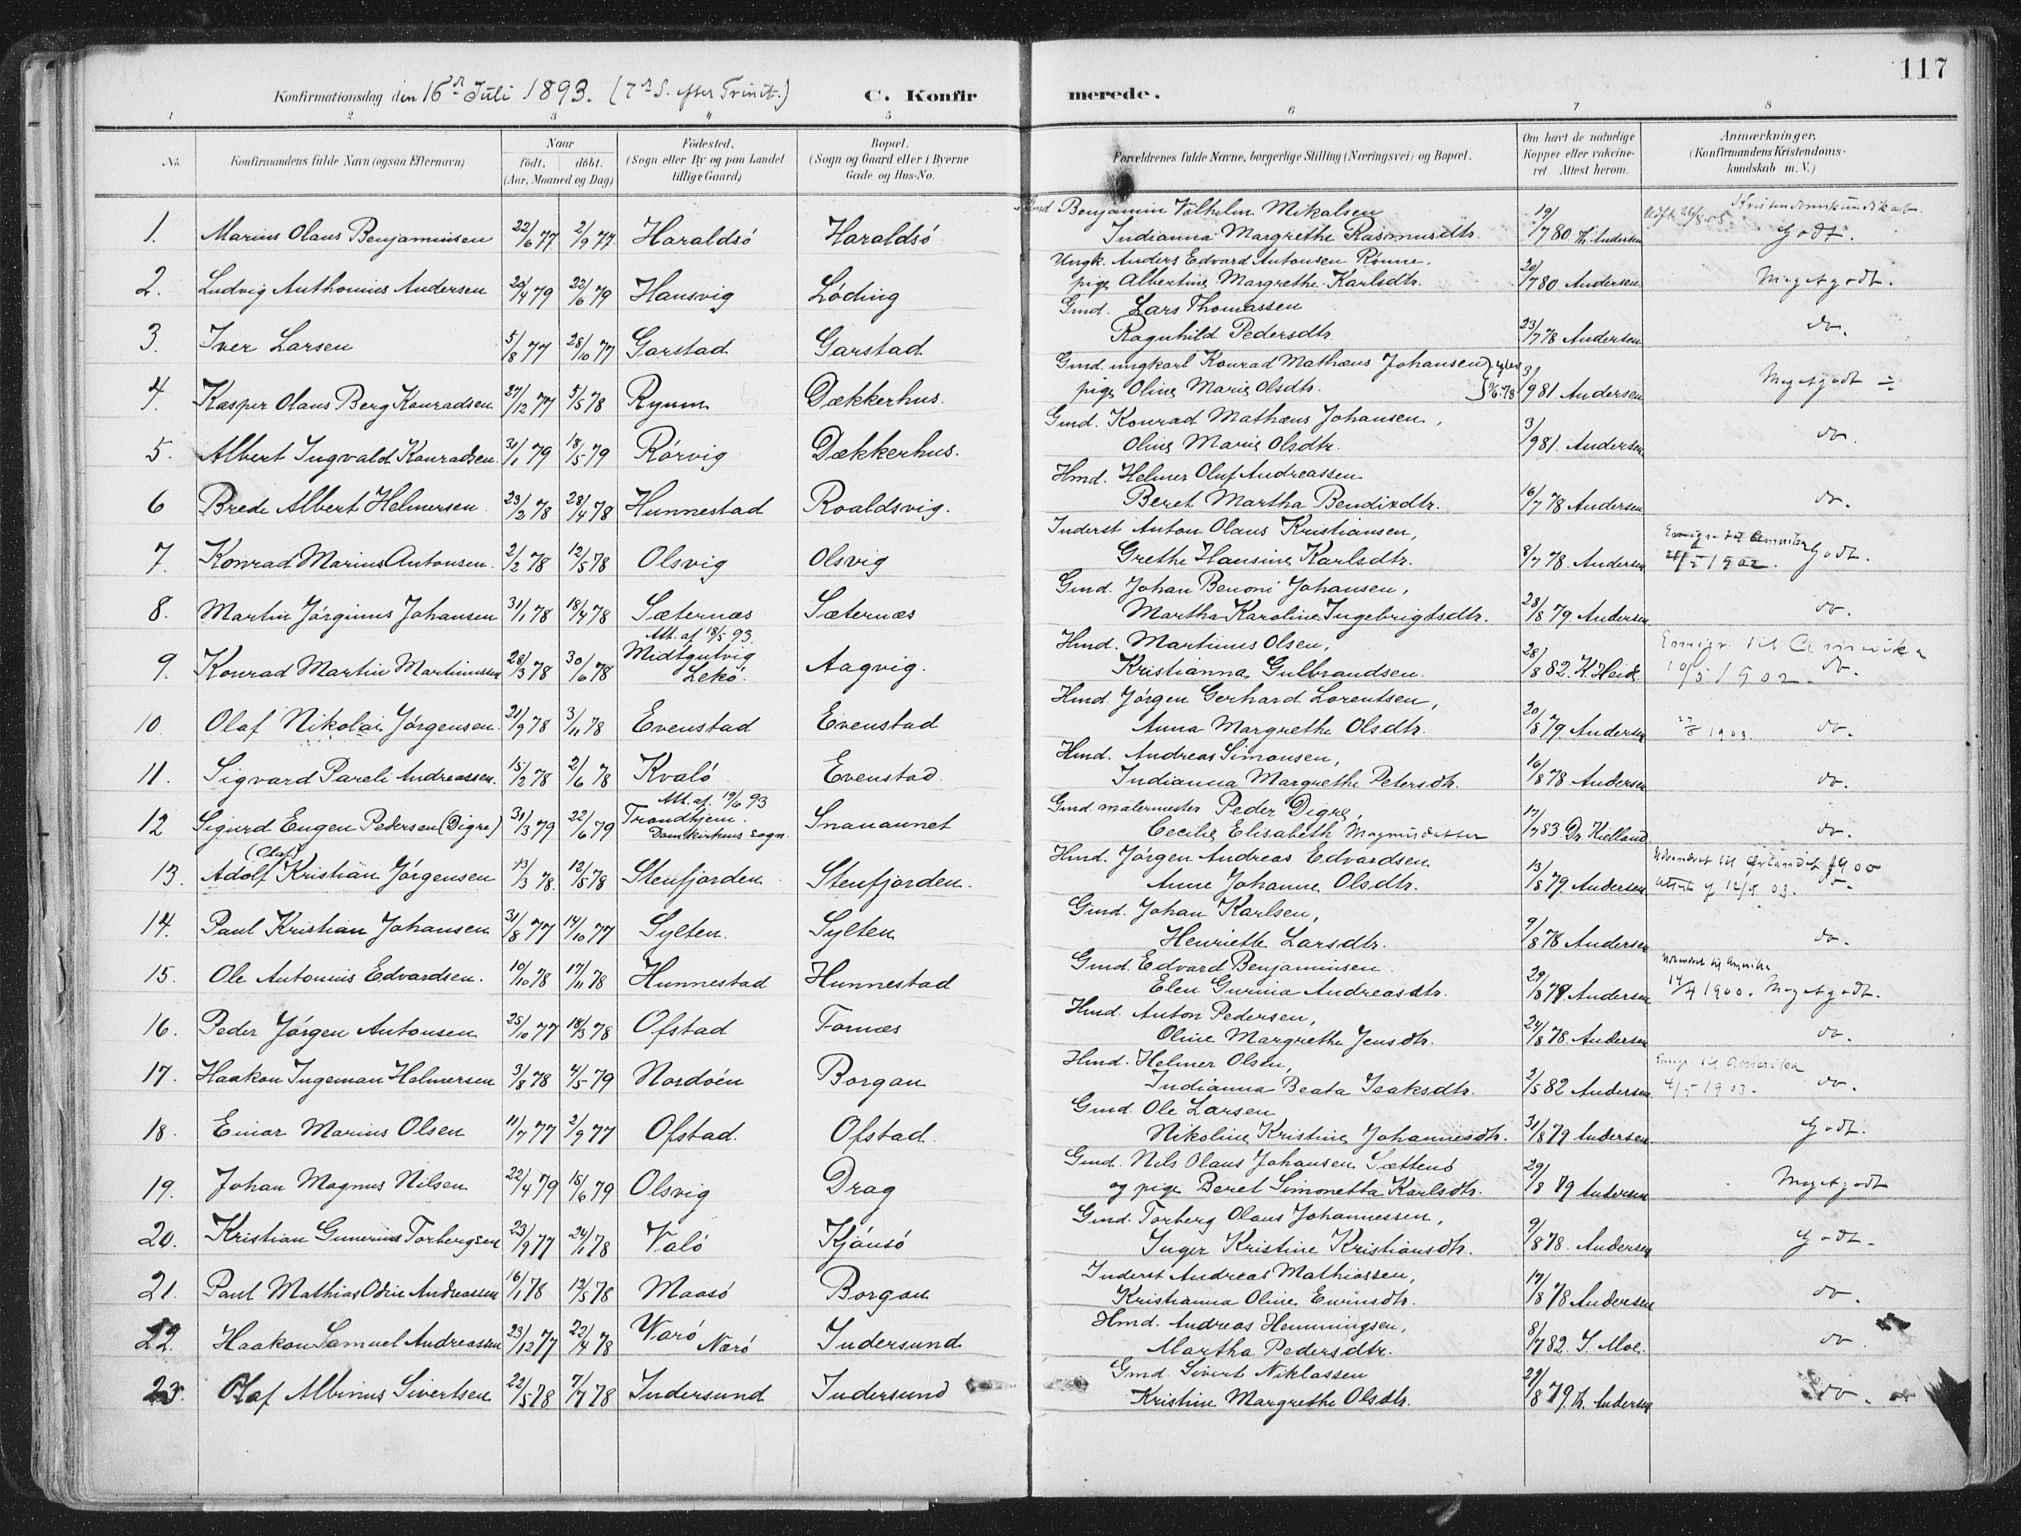 117
Konfirmationsdag den 16de Juli 1893. (7de S. efter Trinit.) C. Konfirmerede.
1 2 3 4 5 6 7 8
No. Konfirmandens fulde Navn (ogsaa Efternavn) Naar født. døbt. (Aar, Maaned og Dag) Fødested. (Sogn eller By og paa Landet tillige Gaard) Bopæl. (Sogn og Gaard eller i Byerne Gade og Hus-No. Forældrenes fulde Navne, borgerlige Stilling (Næringsvei) og Bopæl. Om havt de naturlige Kopper eller vakcineret. Attest herom. Anmærkninger. (Konfirmandens Kristendomskundskab m. V.)
1. Marius Olaus Benjaminsen 22/6 77 2/9 77 Haraldsø Haraldsø Benjamin Vilhelm Mikalsen Indianna Margrethe Rasmusdtr. 19/7 80 Th. Andersen Udft. 26/8.05 Kristendomskundskab Godt.
2. Ludvig Anthonius Andersen 20/4 79 22/6 79 Hansvig Løding Ungk. Anders Edvard Antonsen Rønne. pige Albertine Margrethe Karlsdtr. 20/7 80 Andersen Megetgodt.
3. Iver Larsen 5/8 77 28/10 77 Garstad Garstad Gmd. Lars Thomassen Ragnhild Pedersdtr. 23/7 78 Andersen do.
4. Kasper Olaus Berg Konradsen 27/12 77 5/5 78 Ryum Dækkerhus. Gmd. ungkarl Konrad Mathæus Johansen pige Oline Marie Olsdtr. 3/9 81. Andersen Megetgodt ÷
5. Albert Ingvald Konradsen 31/1 79 18/5 79 Rørvig Dækkerhus. Gmd. Konrad Mathæus Johansen, Oline Marie Olsdtr. 3/9 81. Andersen do.
6 Brede Albert Helmersen. 23/2 78 28/4 78 Hunnestad Roaldsvig. Hmd. Helmer Oluf Andreassen Beret Martha Bendixdtr. 16/7 78 Andersen do.
7. Konrad Marius Antonsen. 2/2 78 12/5 78 Olsvig Olsvig Inderst Anton Olaus Kristiansen, Grethe Hansine Karlsdtr. 8/7 78. Andersen Emigr. til Amerika 1902. Godt.
8. Martin Jørginus Johansen 31/1 78 18/4 78 Sæternæs Sæternæs Gmd. Johan Benoni Johansen, Martha Karoline Ingebrigtsdtr. 28/8 79. Andersen do.
9. Konrad Martin Martinussen 28/3 78 30/6 78 Att. af 18/5 93. Midtgutvig Lekø. Aagvig. Hmd. Martinus Olsen, Kristianna Gulbrandsen. 28/8 82. K. Heide Emigr. til Amerika 10/5 1902. do.
10. Olaf Nikolai Jørgensen. 21/9 78 3/11 78 Evenstad Evenstad Hmd. Jørgen Gerhard Lorentsen, Anna Margrethe Olsdtr. 20/8 79. Andersen 1903. do.
11. Sigvard Pareli Andreassen. 15/2 78 2/6 78 Kvalø Evenstad. Hmd. Andreas Simonsen, Indianna Margrethe Petersdtr. 16/8 78 Andersen do.
12 Sigurd Eugen Pedersen (Digre) 31/3 79 22/6 79 Att. af. 19/6 93 Trondhjem. Domkirkens sogn. Snauaunet Gmd malermester Peder Digre, Cecilie Elisabeth Magnusdatter 17/7 83 Dr. Kielland do.
13. (Olaf) Adolf Kristian Jørgensen 13/3 78. 12/5 78 Stenfjorden Stenfjorden. Hmd. Jørgen Andreas Edvardsen. Anne Johanne Olsdtr. 13/8 79. Andersen Udvandret til Ørlandet 1900 attest 12/5 03. do.
14. Paul Kristian Johansen 31/8 77 14/10 77 Sylten. Sylten Gmd. Johan Karlsen, Henriette Larsdtr. 9/8 78 Andersen do.
15. Ole Antonius Edvardsen. 10/10 78 17/11 78 Hunnestad Hunnestad Gmd. Edvard Benjaminsen. Elen Gurina Andreasdtr. 29/8 79 Andersen Udvandret til Amerika 17/4 1900. Megetgodt.
16. Peder Jørgen Antonsen 25/10 77 18/3 78 Ofstad Fornæs Hmd. Anton Pedersen, Oline Margrethe Jensdtr. 24/8 78 Andersen do.
17. Haakon Ingeman Helmersen 3/8 78 4/5 79 Nordøen Borgan Hmd. Helmer Olsen, Indianna Beata Isaksdtr. 2/5 82 Andersen. Emigr. til Amerika 4/5 1903. do.
18. Einar Marius Olsen 11/7 77 2/9 77 Ofstad. Ofstad. Gmd. Ole Larsen Nikoline Kristine Johannesdtr. 31/8 79 Andersen. Godt.
19. Johan Magnus Nilsen 22/4 79 15/6 79 Olsvig Drag Gmd. Nils Olaus Johansen Sættenø og pige Beret Simonetta Karlsdtr. 29/8 79 Andersen Megetgodt
20. Kristian Gunerius Torbergsen 23/9 77 24/1 78 Valø Kjønsø Gmd. Torberg Olaus Johannessen, Inger Kristine Kristiansdtr. 9/8 78. Andersen Godt.
21. Paul Mathias Odin Andreassen 16/1 78 12/5 78 Maasø Borgan Inderst Andreas Mathiassen, Kristianna Oline Eurinsdtr. 17/8 78 Andersen do.
22. Haakon Samuel Andreassen 23/12 77 22/4 78 Varø Nærø Indersund Hmd. Andreas Hemmingsen, Martha Pedersdtr. 8/7 82. I. Moe. do
23. Olaf Albinus Sivertsen 22/5 78 7/7 78 Indersund Indersund Gmd. Sivert Niklassen Kristine Margrethe Olsdtr. 29/8 79. Th. Andersen do.